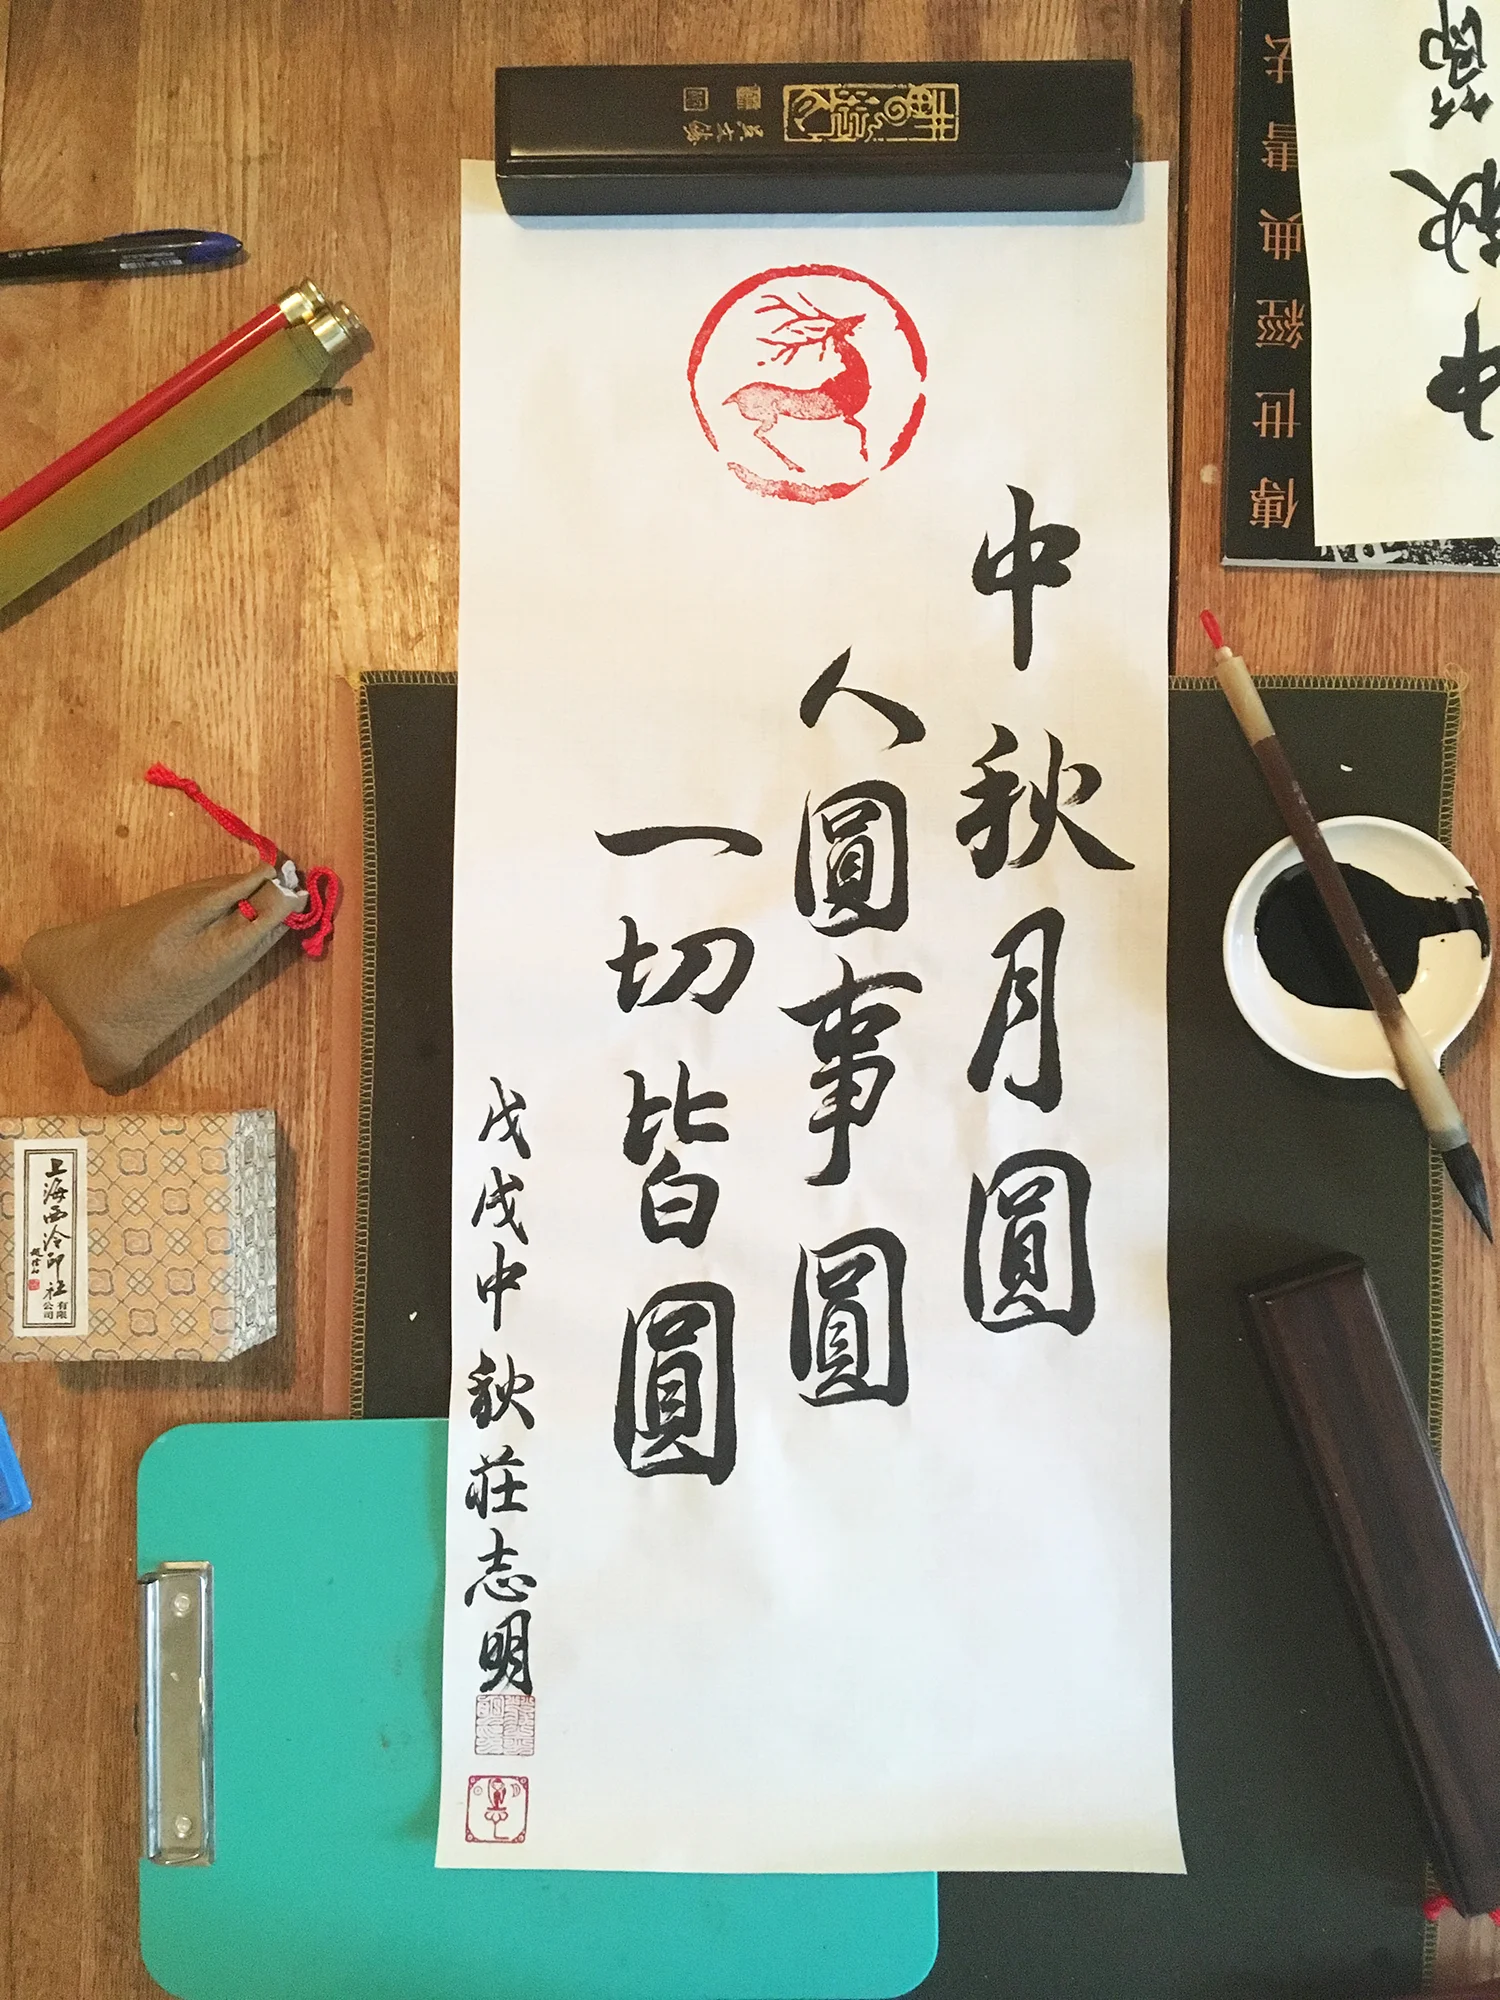 中秋月圓
人圓事圓
一切皆圓
戊戌中秋莊志明
傳世經典書法
中秋節
上海西泠印社
有限公司